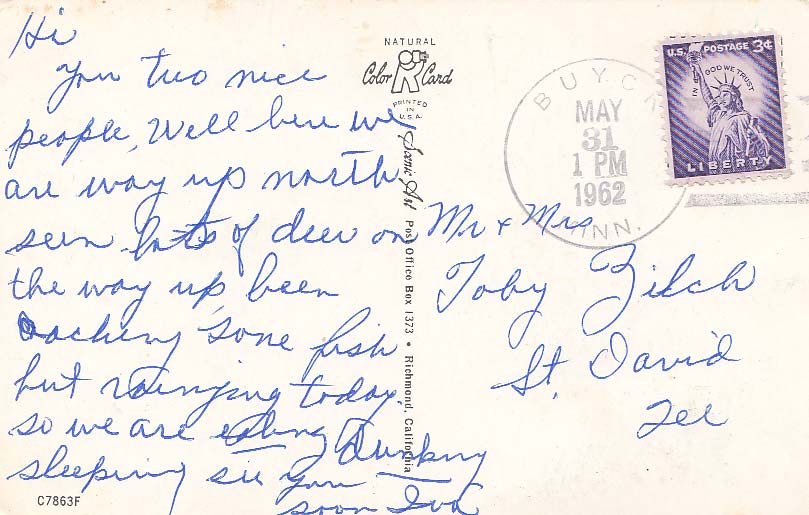 Hi
You two nice
people, Well here we
are way up north
seen lots of deer on
the way up been
caching some fish
but rainjing today.
so we are eating drinking
sleeping see you
soon Iva
C7863F
NATURAL
Color Card
PRINTED
IN
U.S.A.
Scenic Art Post Office Box 1373 • Richmond, California
BUYCK
MAY
31
1 PM
1962
MINN.
U.S. POSTAGE 3¢
IN GOD WE TRUST
LIBERTY
Mr + Mrs
Toby Zilch
St. David
Ill